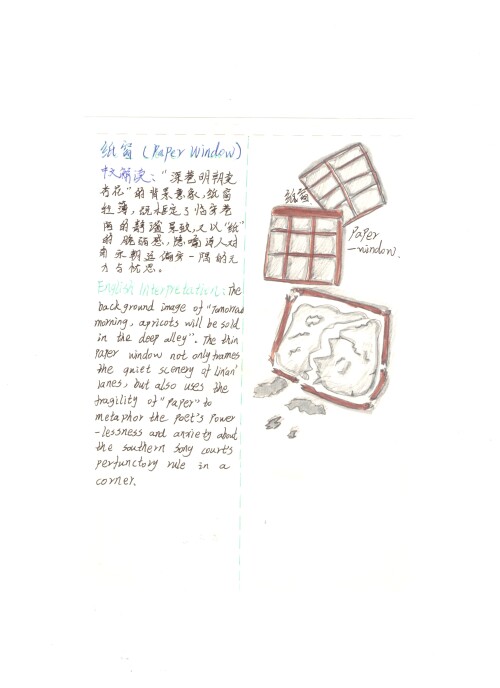 纸窗 (Paper Window)
中文解读："深巷明朝卖
杏花"的背景意象,纸窗
轻薄,既框定了临安巷
陌的静谧景致,又以"纸"
的脆弱感,隐喻诗人对
南宋朝廷偏安一隅的无
力与忧思。
English Interpretation: The
background image of "Tomorrow
morning, apricots will be sold
in the deep alley". The thin
Paper window not only frames
the quiet scenery of Lin'an'
lanes, but also uses the
fragility of "Paper" to
metaphor the Poet's Power
-lessness and anxiety about
the southern Song court's
perfunctory rule in a
corner.
纸窗
Paper
-window.